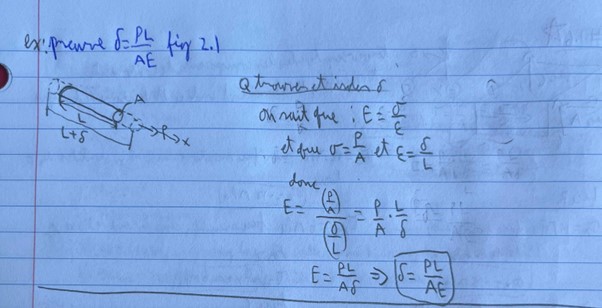 ex: preuve δ = PL/AE fig 2.1
A
L
L+δ
P x
Q trouver et isoler δ
on sait que : E = σ/ε
et que σ = P/A et ε = δ/L
donc
E = (P/A)/(δ/L) = P/A · L/δ
E = PL/Aδ ⇒ δ = PL/AE